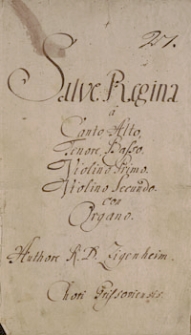 27.
Salve Regina
à
Canto Alto,
Tenore, Basso.
Violino Primo.
Violino Secundo.
con
Organo.
Authore R. D. Zigenheim.
Chori